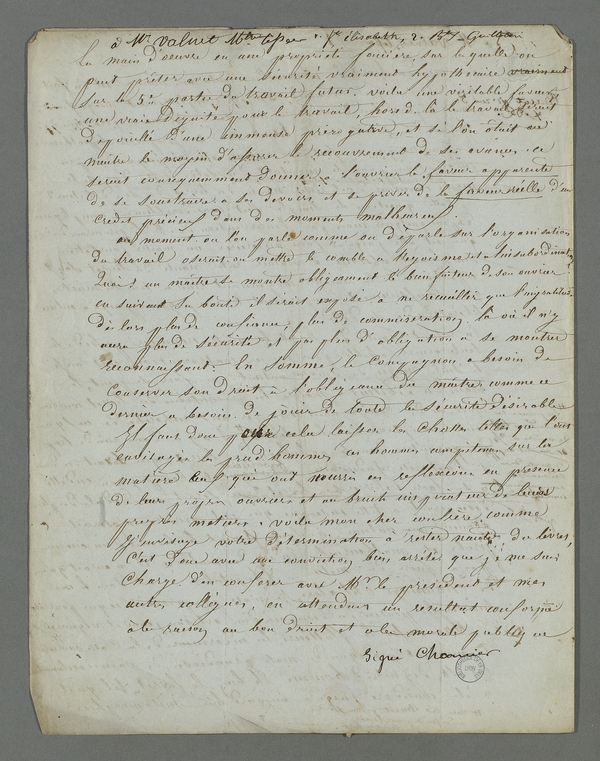 a Mr Valuet
La main d'oeuvre en une propriété foncière, sur laquelle on
peut prêter avec une sécurité vraiment hypothécaire vraiment
sur la 5e partie du travail futur. voilà une véritable faveur
une vraie dignité pour le travail, hors de là le travail serait
dépouillé d'une immense prérogative, et si l'on ôtait au
maître le moyen d'assurer le recouvrement de ses avances. ce
serait conséquemment donner à l'ouvrier la faveur apparente
de se soustraire a ses devoirs et se priver de la faveur réelle d'un
crédit précieux dans des moments malheureux.
au moment ou l'on parle comme on déparle sur l'organisation
du travail oserait on mettre le comble a l'égoïsme et a l'insubordination
Quoi! un maître se montre obligeament le bienfaiteur de son ouvrier
en suivant sa bonté il serait exposé a ne recueillir que l'ingratitude
dès lors plus de confiance, plus de commisération, là où il n'y
aura plus de sécurité et pas plus d'obligation a se montrer
reconnaissant. En somme, le compagnon a besoin de
conserver son droit a l'obligeance du maître comme ce
dernier a besoin de jouir de toute la sécurité désirable
Il faut donc pour cela laisser les choses telles que l'ont
envisagée les prud'hommes, ces hommes compétents sur la
matière qui ont nourri ces réflexions en présence
de leurs propres ouvriers et au bruit inspirateur de leurs
propres métiers. voilà mon cher confrère comme
j'envisage votre détermination à rester nanti du livret,
c'est donc avec une conviction bien arrêtée que je me suis
chargé d'en conférer avec Mr le président et mes
autres collègues, en attendant un résultat conforme
à la raison au bon droit et a la morale publique
Signé Charnier